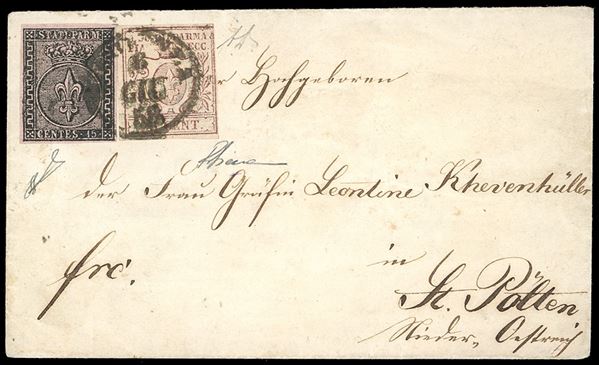 STATI PARM.
CENTES. 15
PARMA
ECC.
CENT.
6
GIU
58
Hochgeboren
der Frau Gräfin Leontine Khevenhüller
frc.
in
St. Pölten
Nieder-Oestreich